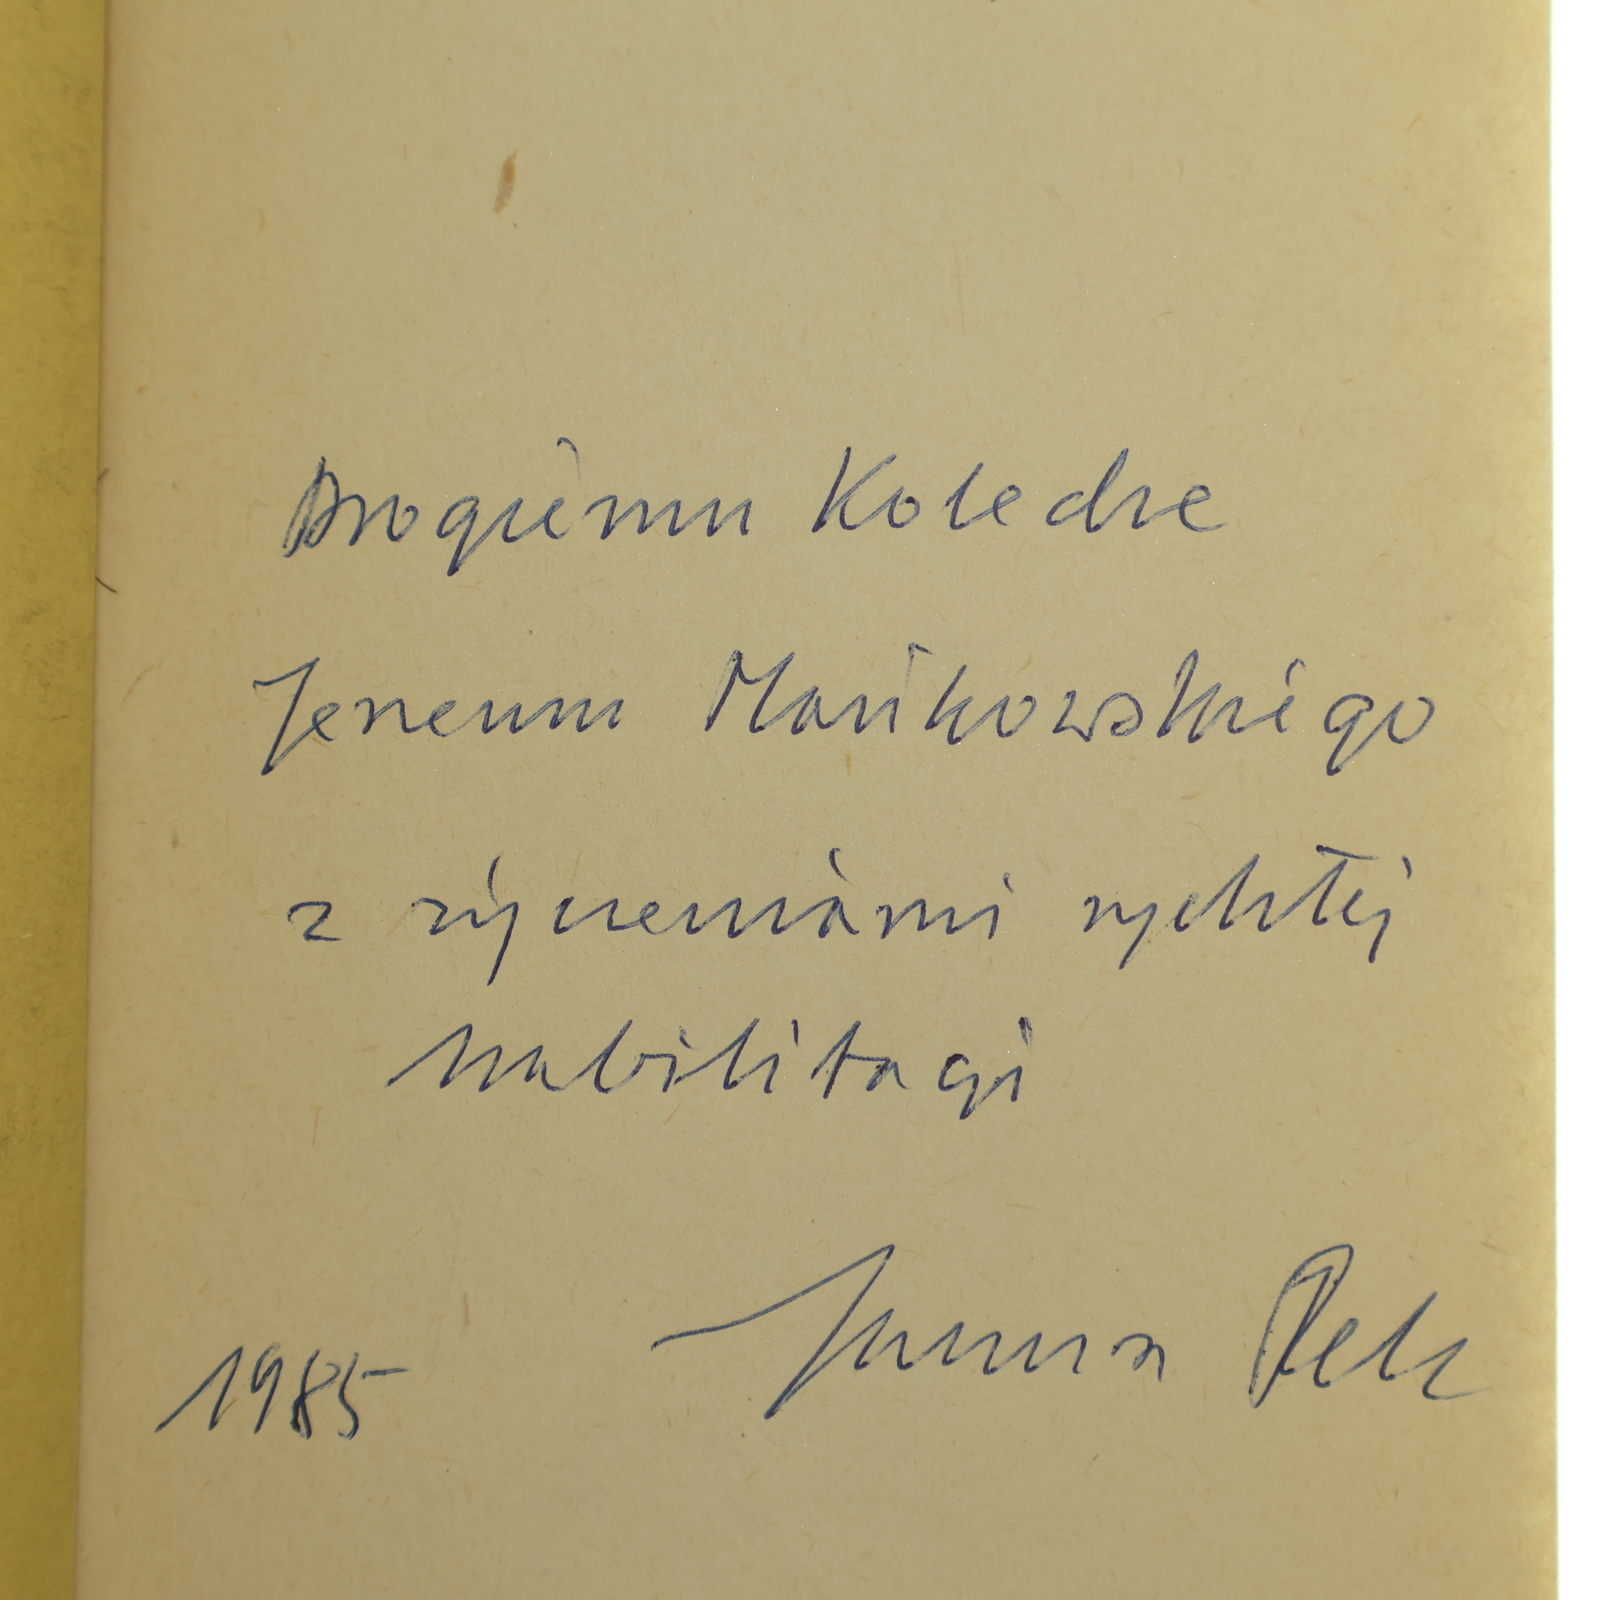 Drogiemu Koledze
Jerzemu Mańkowskiego
z życzeniami rychłej
habilitacji
Janusz Pelc
1985